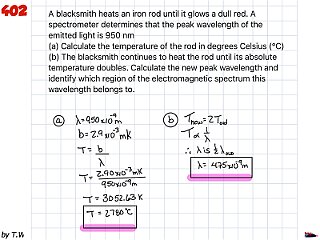 402
A blacksmith heats an iron rod until it glows a dull red. A
spectrometer determines that the peak wavelength of the
emitted light is 950 nm
(a) Calculate the temperature of the rod in degrees Celsius (°C)
(b) The blacksmith continues to heat the rod until its absolute
temperature doubles. Calculate the new peak wavelength and
identify which region of the electromagnetic spectrum this
wavelength belongs to.
a
λ = 950x10⁻⁹m
b = 2.9x10⁻³mK
T = b
λ
T = 2.90x10⁻³mK
950x10⁻⁹m
T = 3052.63K
T = 2780°C
b
Tnow = 2Told
T ∝ 1
λ
∴ λ is ½
λ = 475x10⁻⁹m
by T.W